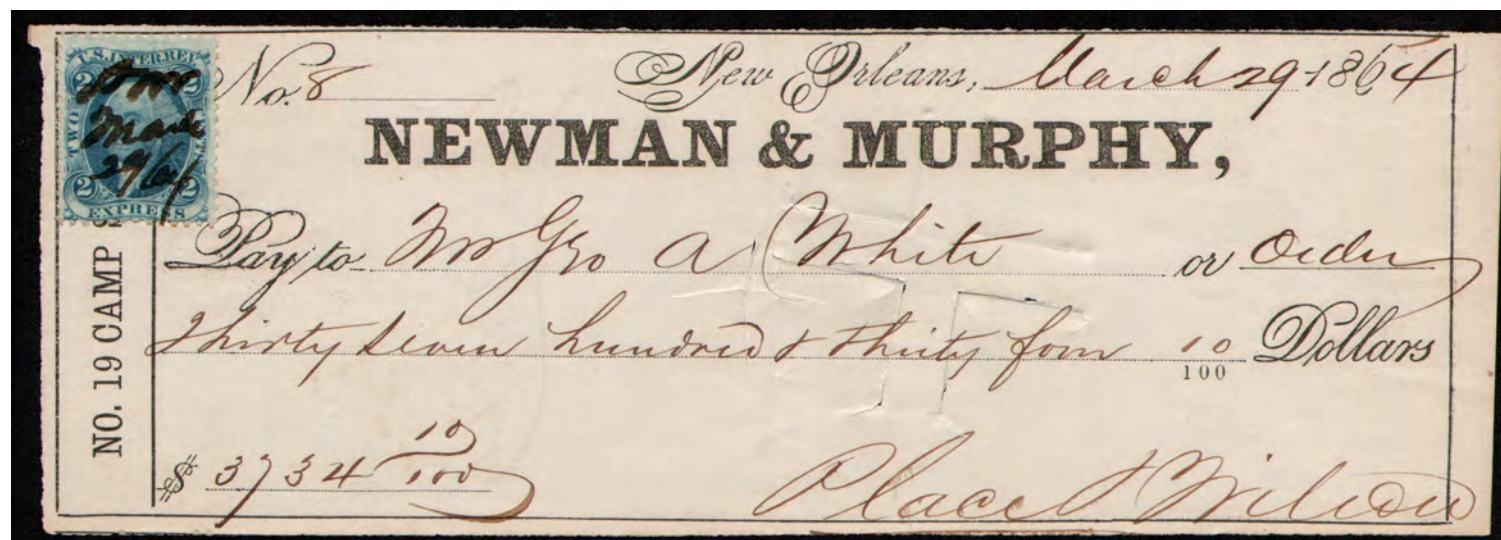 U.S. INTER. REV.
2 2
TWO
2 2
EXPRESS
29/64
No. 8 New Orleans, March 29 1864
NEWMAN & MURPHY,
Pay to Mr Geo A White or Order
Thirty seven hundred & thirty four 10/100 Dollars
$ 3734 10/100
Place & Wilson
NO. 19 CAMP